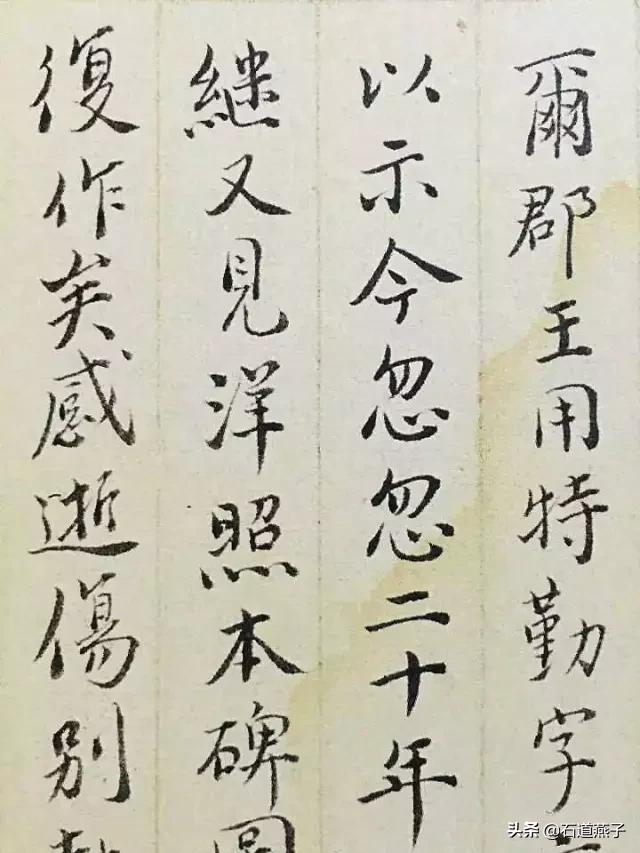 爾郡王用特勤字
以示今忽忽二十年
继又見洋照本碑圓
復作矣感逝傷别
头条 @石道燕子